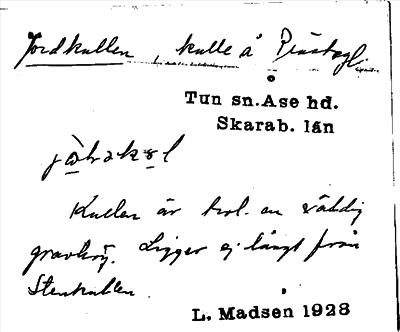 Jordkullen, kulle å Prästegl.
Tun sn. Ase hd.
Skarab. län
Kullen är trol. en väldig
gravhög. Ligger ej långt från
Stenkullen.
L. Madsen 1928